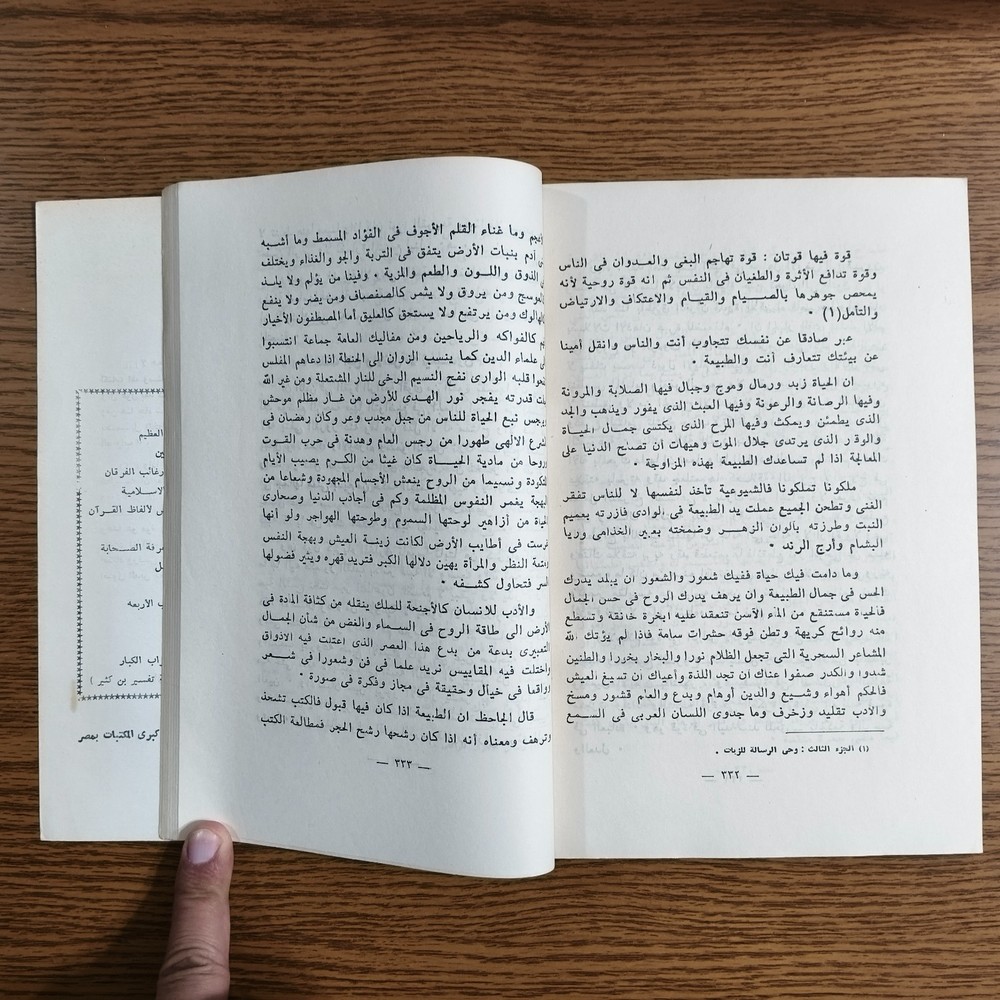 قوة فيها قوتان : قوة تهاجم البغى والعدوان فى الناس
وقوة تدافع الأثرة والطغيان فى النفس ثم انه قوة روحية لأنه
يمحص جوهرها بالصيام والقيام والاعتكاف والارتياض
والتأمل(١) .
عبر صادقا عن نفسك تتجاوب أنت والناس وانقل أمينا
عن بيئتك تتعارف أنت والطبيعة .
ان الحياة زبد ورمال وموج وجبال فيها الصلابة والمرونة
وفيها الرصانة والرعونة وفيها العبث الذى يفور ويذهب والجد
الذى يطمئن ويمكث وفيها المرح الذى يكتسى جمال الحياة
والوقار الذى يرتدى جلال الموت وهيهات أن تصلح الدنيا على
المعالجة اذا لم تساعدك الطبيعة بهذه المزاوجة .
ملكونا تملكونا فالشيوعية تأخذ لنفسها لا للناس تفقر
الغنى وتطحن الجميع عملت يد الطبيعة فى الوادى فازرته بعميم
النبت وطرزته بالوان الزهر وضمخته بعبير الخذامى وريا
البشام وأرج الرند .
وما دامت فيك حياة ففيك شعور والشعور ان يبلد يدرك
الحس فى جمال الطبيعة وان يرهف يدرك الروح فى حس الجمال
فالحياة مستنقع من الماء الآسن تنعقد عليه ابخرة خانقة وتسطع
منه روائح كريهة وتطن فوقه حشرات سامة فاذا لم يؤتك الله
المشاعر السحرية التى تجعل الظلام نورا والبخار بخورا والطنين
شدوا والكدر صفوا عناك ان تجد اللذة وأعياك أن تسيغ العيش
فالحكم أهواء وشيع والدين أوهام وبدع والعام قشور ومسخ
والادب تقليد وزخرف وما جدوى اللسان العربى فى السمع
(١) الجزء الثالث : وحى الرسالة للزيات .
— ٣٣٢ —
وما غناء القلم الأجوف فى الفؤاد المسمط وما أشبه
آدم بنبات الأرض يتفق فى التربة والجو والغذاء ويختلف
الذوق واللون والطعم والمزية . وفينا من يؤلم ولا يلذ
ومن يروق ولا يثمر كالصفصاف ومن يضر ولا ينفع
ومن يرتفع ولا يستحق كالعليق أما المصطفون الأخيار
كالفواكه والرياحين ومن مفاليك العامة جماعة انتسبوا
علماء الدين كما ينسب الزوان الى الحنطة اذا دعاهم المفلس
قلبه الوارى نفح النسيم الرخى للنار المشتعلة ومن غير الله
قدرته يفجر نور الهدى للأرض من غار مظلم موحش
نبع الحياة للناس من جبل مجدب وعر وكان رمضان فى
الالهى طهورا من رجس العام وهدنة فى حرب القوت
من مادية الحياة كان غيثا من الكرم يصيب الأيام
ونسيما من الروح ينعش الأجسام المجهودة وشعاعا من
يغمر النفوس المظلمة وكم فى أجادب الدنيا وصحارى
من أزاهير لوحتها السموم وطوحتها الهواجر ولو أنها
فى أطايب الأرض لكانت زينة العيش وبهجة النفس
النظر والمرأة يهين دلالها الكبر فتريد قهره ويثير فضولها
فتحاول كشفه .
والأدب للانسان كالأجنحة للملك ينقله من كثافة المادة فى
الأرض الى طاقة الروح فى السماء والغض من شأن الجمال
التعبيرى بدعة من بدع هذا العصر الذى اعتلت فيه الاذواق
واختلت فيه المقاييس نريد علما فى فن وشعورا فى شعر
وواقعا فى خيال وحقيقة فى مجاز وفكرة فى صورة .
قال الجاحظ ان الطبيعة اذا كان فيها قبول فالكتب تشحذ
وترهف ومعناه أنه اذا كان رشحها رشح الحجر فمطالعة الكتب
— ٣٣٣ —
العظيم
ين
رغائب الفرقان
الاسلامية
س لالفاظ القرآن
عرفة الصحابة
ب الاربعه
راب الكبار
ة تفسير بن كثير )
كبرى المكتبات بمصر